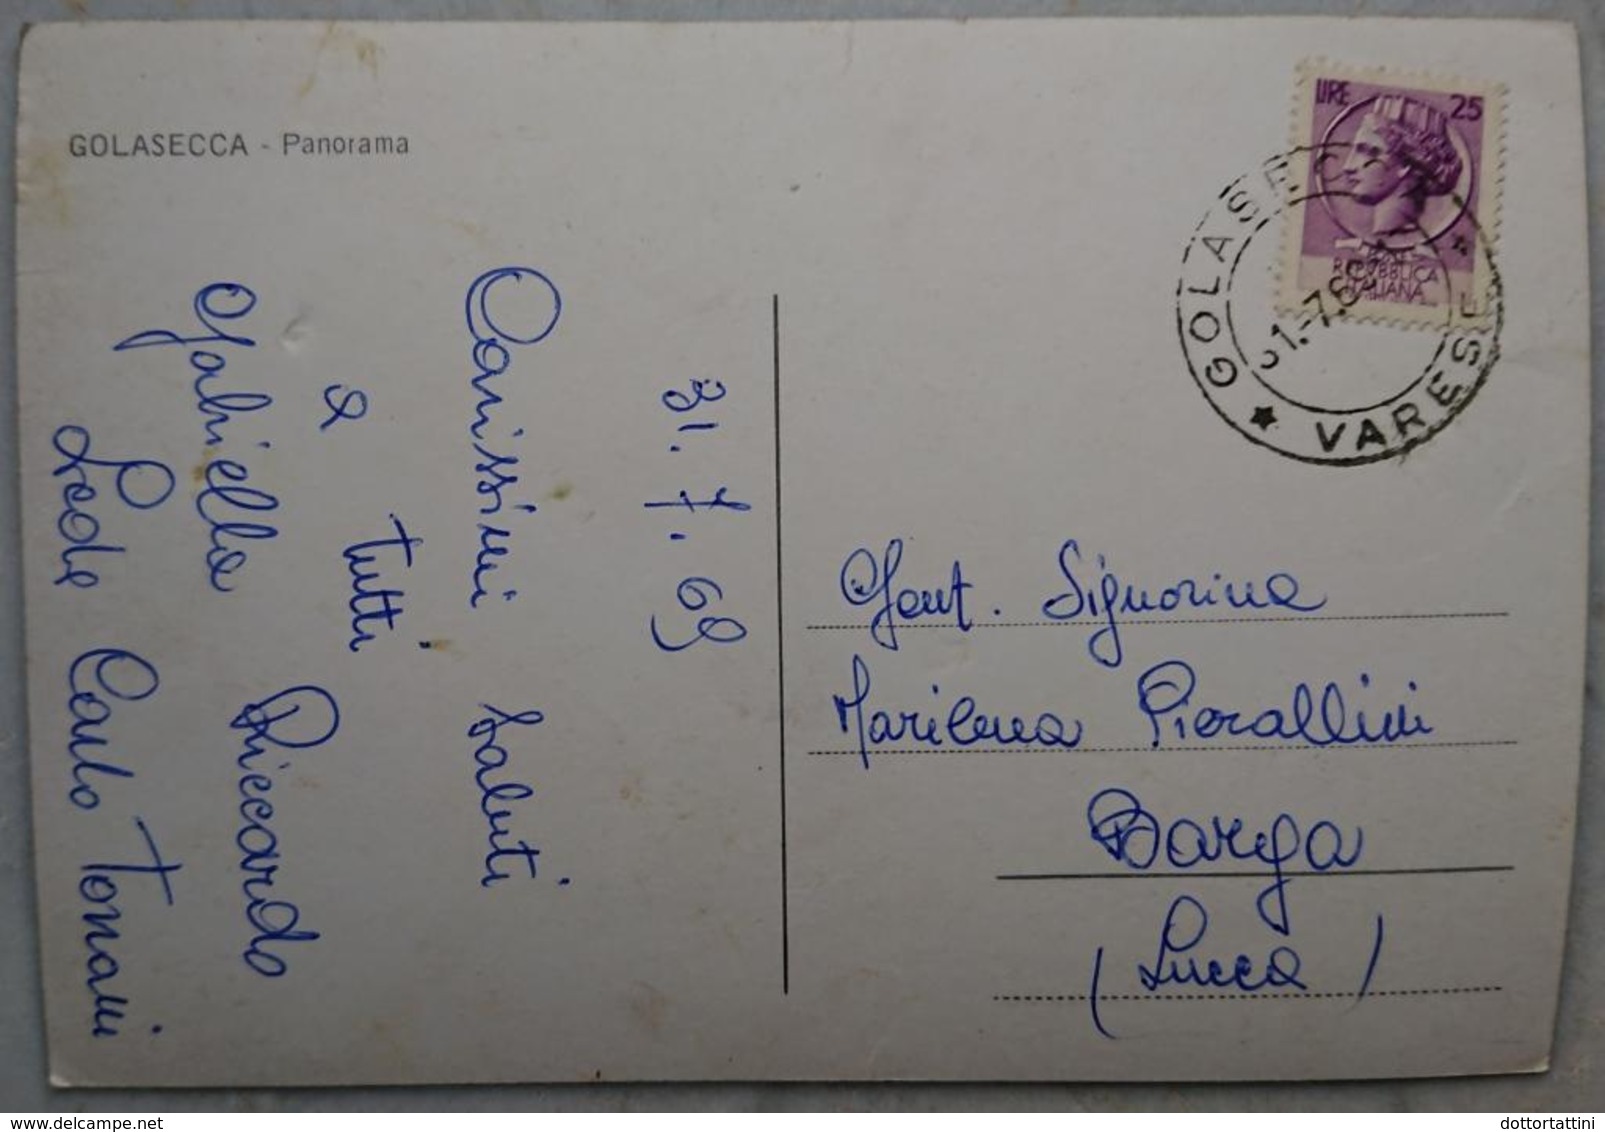 GOLASECCA - Panorama
31.7.69
Carissimi saluti
a tutti
Gabriella Riccardo
Lede Carlo Tonani
LIRE 25
POSTE
REPUBBLICA
ITALIANA
GOLASECCA * VARESE *
31.-7.6
Gent. Signorina
Marilena Pierallini
Barga
(Lucca)
delcampe.net
dottortattini